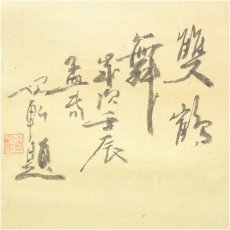 雙鶴
舞
歲次壬辰
孟春
題